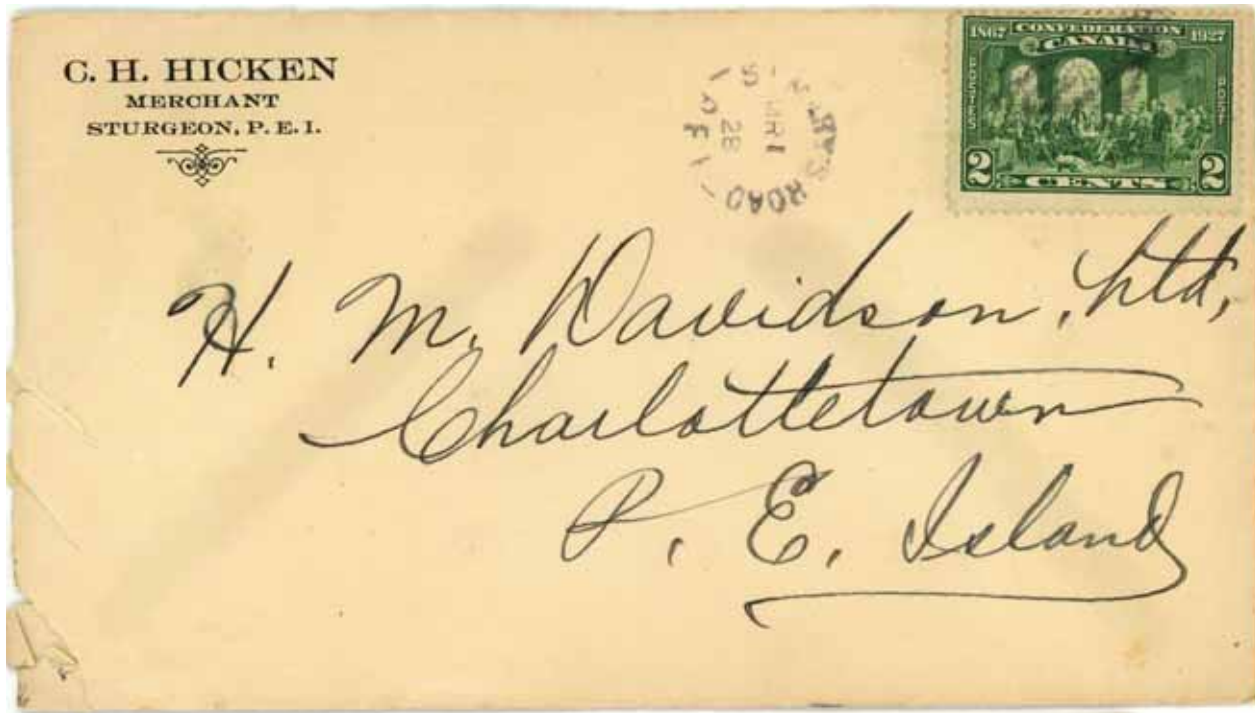 C. H. HICKEN
MERCHANT
STURGEON, P. E. I.
ROAD
MR 1
28
1867 CONFEDERATION 1927
CANADA
POSTES
POST
2 CENTS 2
H. M. Davidson, Ltd,
Charlottetown
P. E. Island